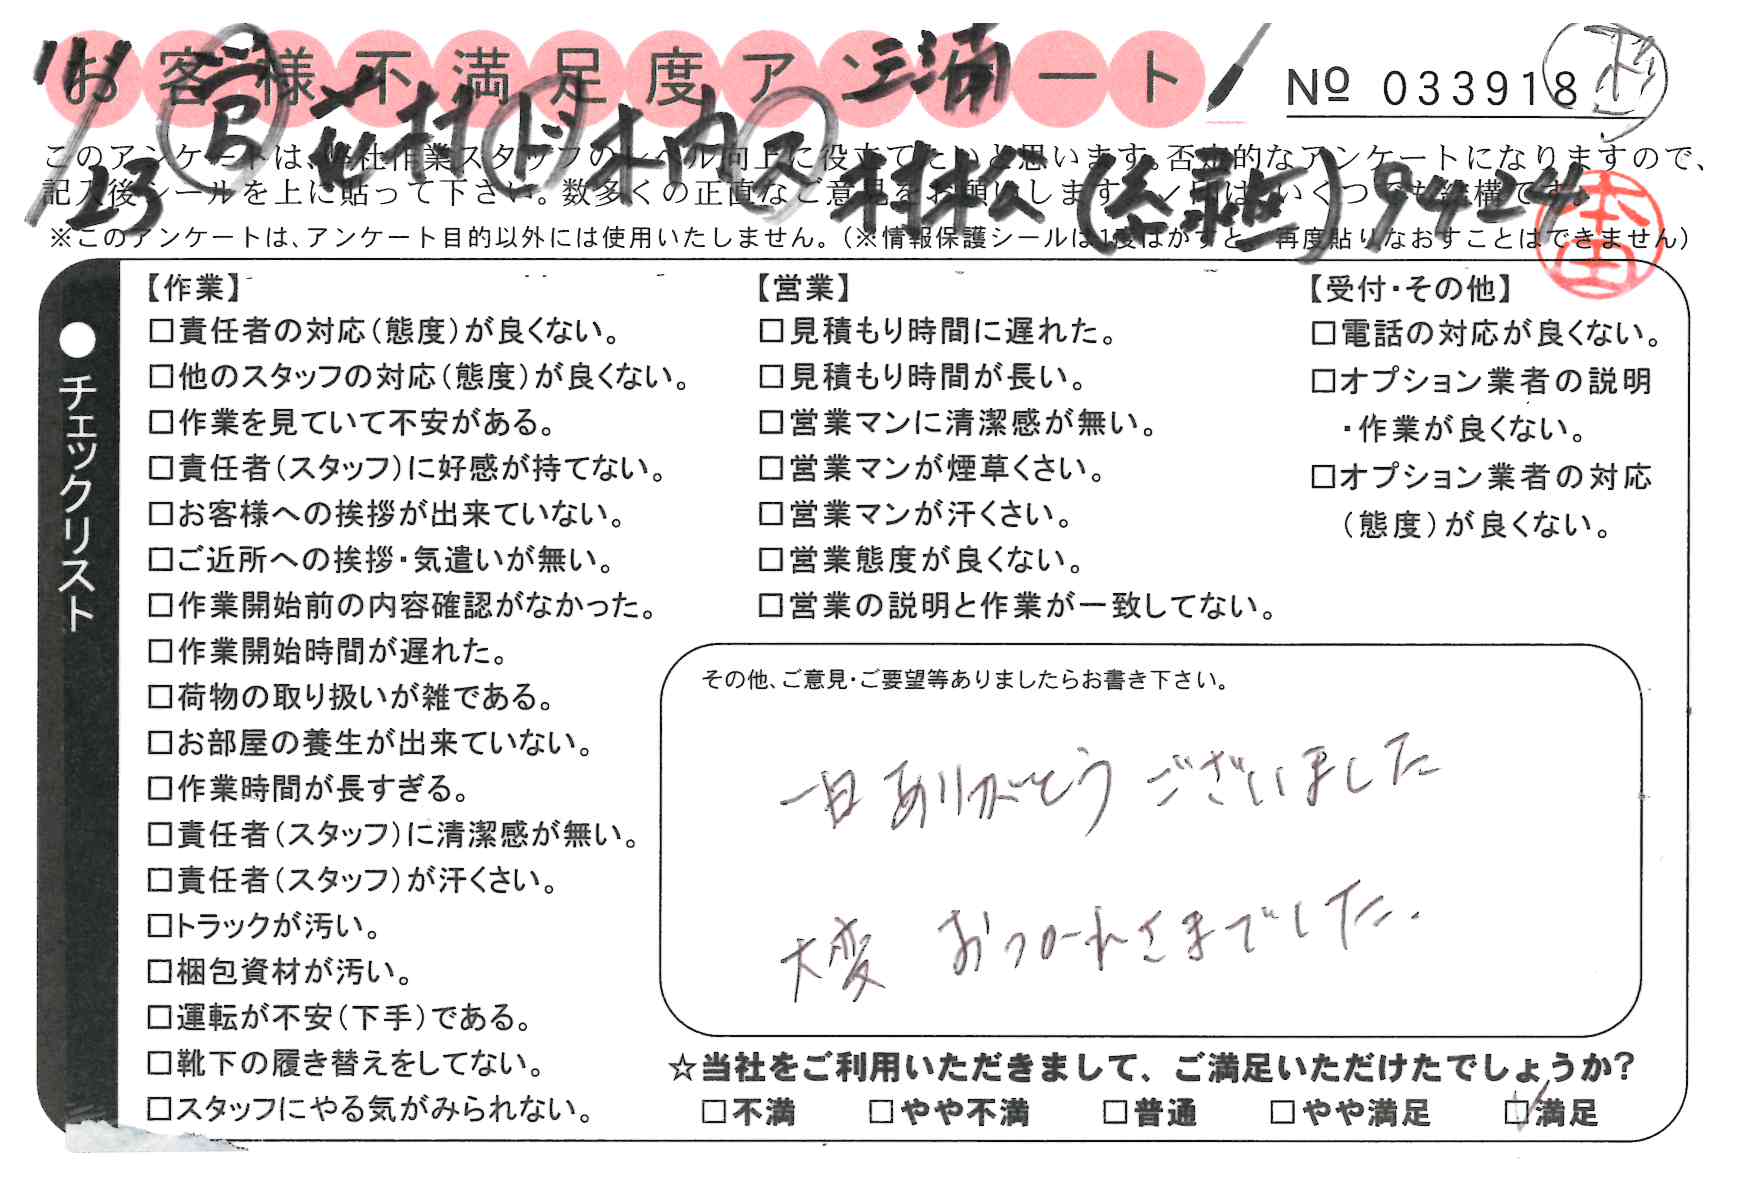 お客様不満足度アンケート
三浦
No 033918
11/23
営 花村 ド 木内 ス 村松 (糸魚) 9424
このアンケートは、弊社作業スタッフのレベル向上に役立てたいと思います。否定的なアンケートになりますので、
記入後シールを上に貼って下さい。数多くの正直なご意見をお願いします。✓印はいくつでも結構です。
※このアンケートは、アンケート目的以外には使用いたしません。(※情報保護シールは1度はがすと、再度貼りなおすことはできません)
●チェックリスト
【作業】
□責任者の対応(態度)が良くない。
□他のスタッフの対応(態度)が良くない。
□作業を見ていて不安がある。
□責任者(スタッフ)に好感が持てない。
□お客様への挨拶が出来ていない。
□ご近所への挨拶・気遣いが無い。
□作業開始前の内容確認がなかった。
□作業開始時間が遅れた。
□荷物の取り扱いが雑である。
□お部屋の養生が出来ていない。
□作業時間が長すぎる。
□責任者(スタッフ)に清潔感が無い。
□責任者(スタッフ)が汗くさい。
□トラックが汚い。
□梱包資材が汚い。
□運転が不安(下手)である。
□靴下の履き替えをしてない。
□スタッフにやる気がみられない。
【営業】
□見積もり時間に遅れた。
□見積もり時間が長い。
□営業マンに清潔感が無い。
□営業マンが煙草くさい。
□営業マンが汗くさい。
□営業態度が良くない。
□営業の説明と作業が一致してない。
【受付・その他】
□電話の対応が良くない。
□オプション業者の説明
・作業が良くない。
□オプション業者の対応
(態度)が良くない。
その他、ご意見・ご要望等ありましたらお書き下さい。
一日ありがとうございました
大変 おつかれさまでした.
☆当社をご利用いただきまして、ご満足いただけたでしょうか?
□不満 □やや不満 □普通 □やや満足 ☑満足